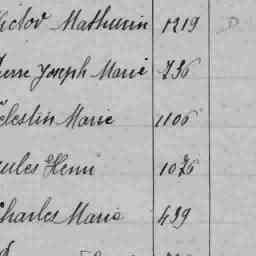 Victor Mathurin 1219
Pierre Joseph Marie 736
Célestin Marie 1106
Jules Henri 1076
Charles Marie 439